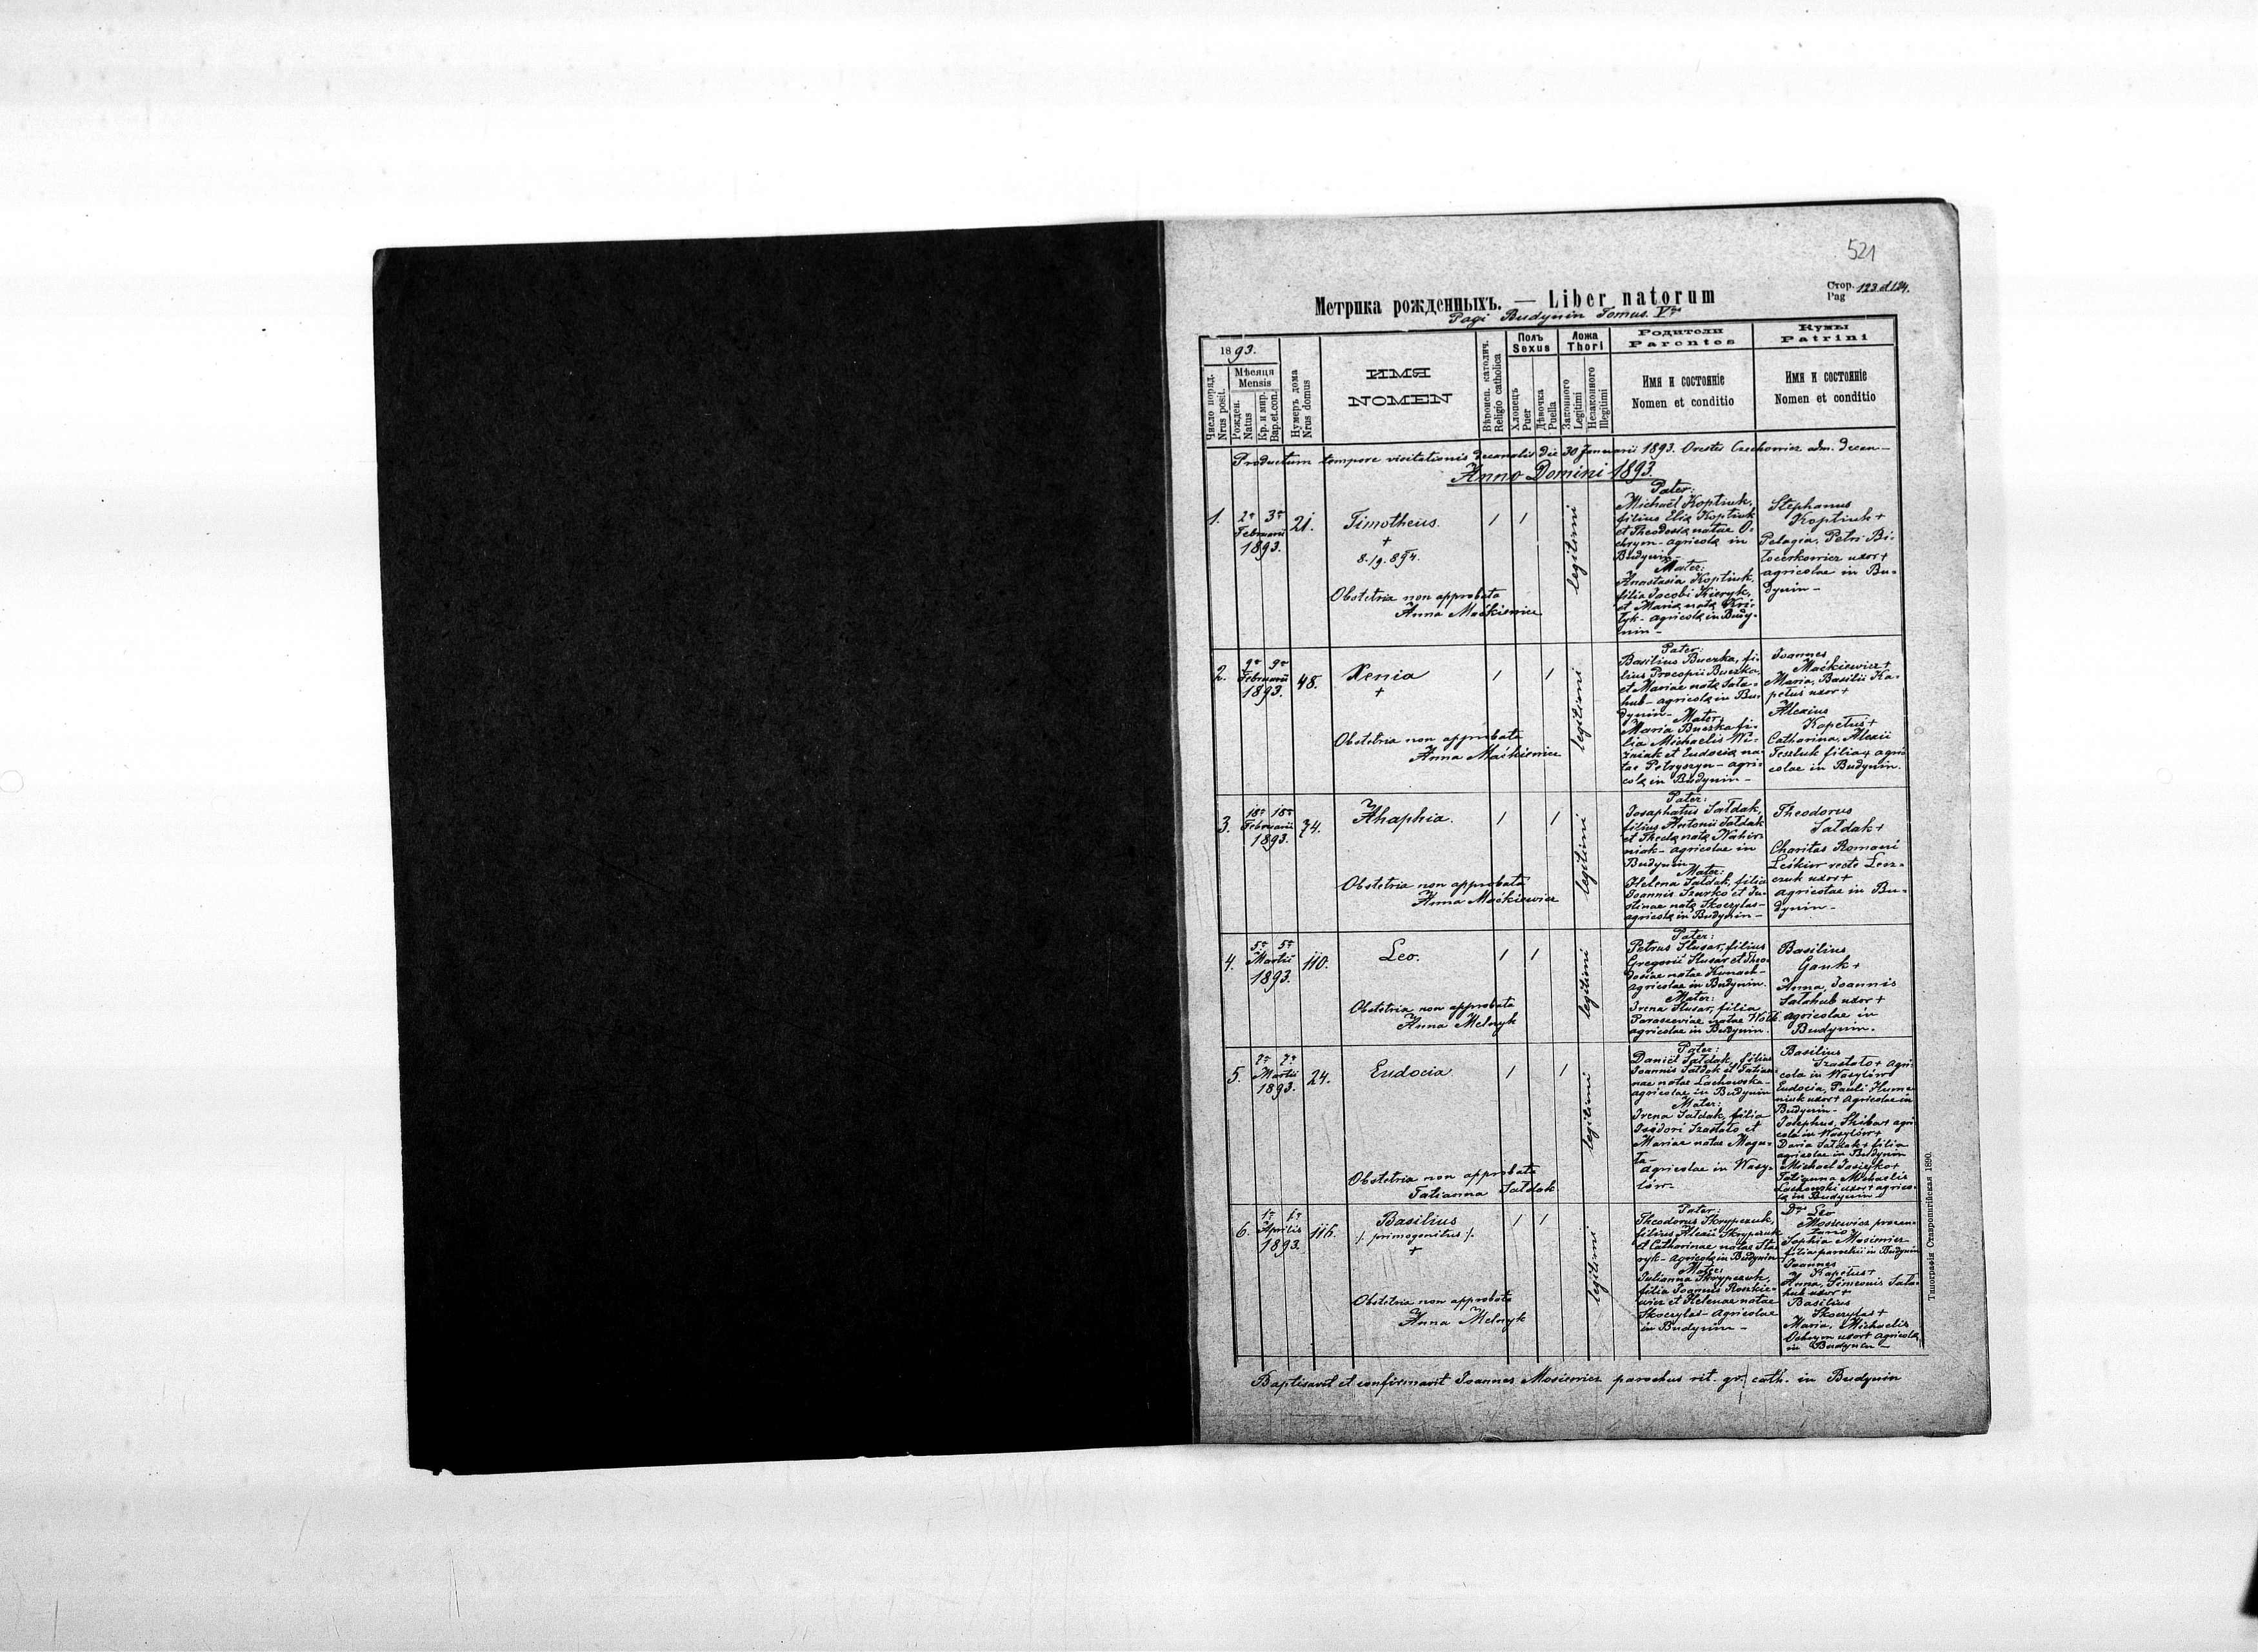 521
Стор. Pag 123 et 124.
Метрика рожденныхъ. — Liber natorum
Pagi Budynin Tomus V
1893.
Число поряд. Nrus posit.
Мѣсяця Mensis
Рожден. Natus
Кр. и мир. Bap. et con.
Нумеръ дома Nrus domus
ИМЯ
NOMEN
Вѣроисп. католич. Religio catholica
Полъ Sexus
Хлопецъ Puer
Дѣвочка Puella
Ложа Thori
Законного Legitimi
Незаконного Illegitimi
Родители
Parentes
Имя и состояніе
Nomen et conditio
Кумы
Patrini
Имя и состояніе
Nomen et conditio
Productum tempore visitationis decanalis die 30 Januarii 1893. Orestes Czechowicz adm. decan—
Anno Domini 1893.
1.
2ª 3ª
Februarii
1893.
21.
Timotheus.
+
Obstetrix non approbata
Anna Maćkiewicz
legitimi
Pater:
Michaël Koptiuk,
filius Eliæ Koptiuk
et Theodosiæ natae O-
chrym - agricolæ in
Budynin -
Mater:
Anastasia Koptiuk,
filia Jacobi Kieryk,
et Mariæ natæ
agricolæ in Budy-
nin -
Stephanus
Koptiuk +
Pelagia, Petri Bi-
łocerkowicz uxor +
agricolae in Bu-
dynin -
2.
9ª 9ª
Februarii
1893.
48.
Xenia
+
Obstetrix non approbata
Anna Maćkiewicz
legitimi
Pater:
Basilius Buczka, fi-
lius Procopii Buczka,
et Mariae natæ Sała-
hub - agricolæ in Bu-
dynin - Mater:
Maria Buczka fi-
lia Michaelis Wi-
zniak et Eudociæ na-
tae Petryszyn - agri-
colæ in Budynin -
Joannes
Maćkiewicz +
Maria, Basilii Ka-
petus uxor +
Alexius
Kapetus +
Catharina, Alexii
Feszluk filia + agri-
colae in Budynin.
3.
18ª 18ª
Februarii
1893.
74.
Ahaphia.
Obstetrix non approbata
Anna Maćkiewicz
legitimi
Pater:
Josaphatus Sałdak,
filius Antonii Sałdak
et Theclæ natæ Nahir-
niak - agricolae in
Budynin -
Mater:
Helena Sałdak, filia
Joannis Szurko et Ju-
stinae natæ Skoczylas -
agricolæ in Budynin -
Theodorus
Sałdak +
Charitas Romani
Leśkiw recte Lesz-
czuk uxor +
agricolae in Bu-
dynin -
4.
5ª 5ª
Martii
1893.
110.
Leo.
Obstetrix non approbata
Anna Melnyk
legitimi
Pater:
Petrus Slusar, filius
Gregorii Slusar et Theo-
dosiae natae Kunach -
agricolae in Budynin.
Mater:
Irena Slusar, filia
Parasceviae natae
agricolae in Budynin.
Basilius
Gauk +
Anna, Joannis
Sałahub uxor +
agricolae in
Budynin.
5.
7ª 7ª
Martii
1893.
24.
Eudocia
Obstetrix non approbata
Tatianna Sałdak
legitimi
Pater:
Daniël Sałdak, filius
Joannis Sałdak et Tatian-
nae natae Lachowska -
agricolae in Budynin
Mater:
Irena Sałdak, filia
Isidori Szastało et
Mariae natae Magu-
ła -
agricolae in Wasy-
lów -
Basilius
Szastało + agri-
cola in Wasylów
Eudocia, Pauli Hume-
niuk uxor + agricolae in
Budynin -
Josephus, Skiba + agri-
cola in Wasylów +
Daria Sałdak + filia
agricolae in Budynin
Michael Josiejko +
Tatianna Michaelis
Lachowski uxor + agrico-
læ in Budynin -
6.
1ª 1ª
Aprilis
1893.
116.
Basilius
/: primogenitus :/
+
Obstetrix non approbata
Anna Melnyk
legitimi
Pater:
Theodorus Skrypczuk,
filius Alexii Skrypczuk
et Catharinae natae Sta-
ryk - agricolæ in Budynin
Mater:
Julianna Skrypczuk,
filia Joannis Roszkie-
wicz et Helenae natae
Skoczylas - agricolae
in Budynin -
Dr Leo
Mosiewicz
Sophia Mosiewicz
filia parochi in Budynin
Joannes
Kapetus +
Anna, Simeonis Sała-
hub uxor +
Basilius
Skoczylas +
Maria, Michaelis
Ochrym uxor + agricolæ
in Budynin -
Baptisavit et confirmavit Joannes Mosiewicz parochus rit. gr. cath. in Budynin
Типографія Ставропигійская 1890.